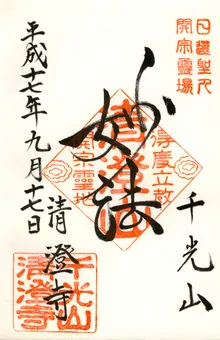 日蓮聖人
開宗霊場
千光山
妙法
得度立教
清澄山
開宗霊地
清澄寺
平成十七年九月十七日
千光山
清澄寺